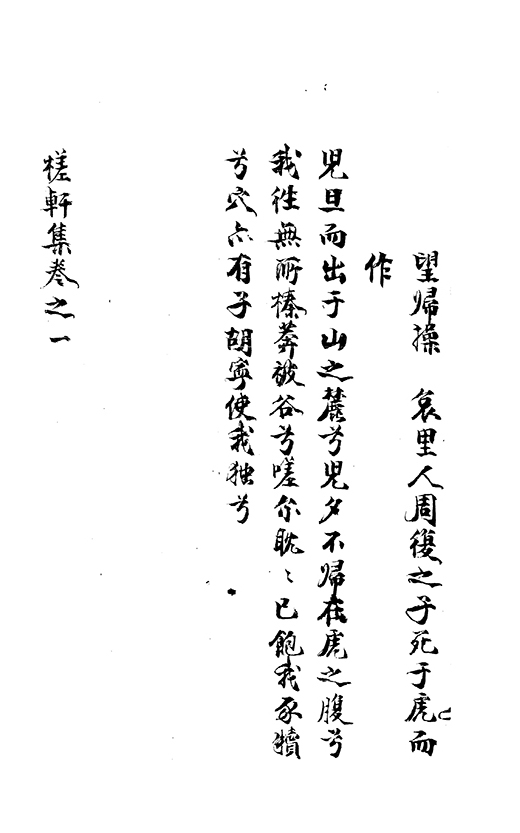 望歸操　哀里人周復之子死于虎而
作
兒旦而出于山之麓兮兒夕不歸在虎之腹兮
我往無所榛莽被谷兮嗟尒眈〻已飽我豕犢
兮穴亦有子胡寧使我独兮
槎軒集卷之一